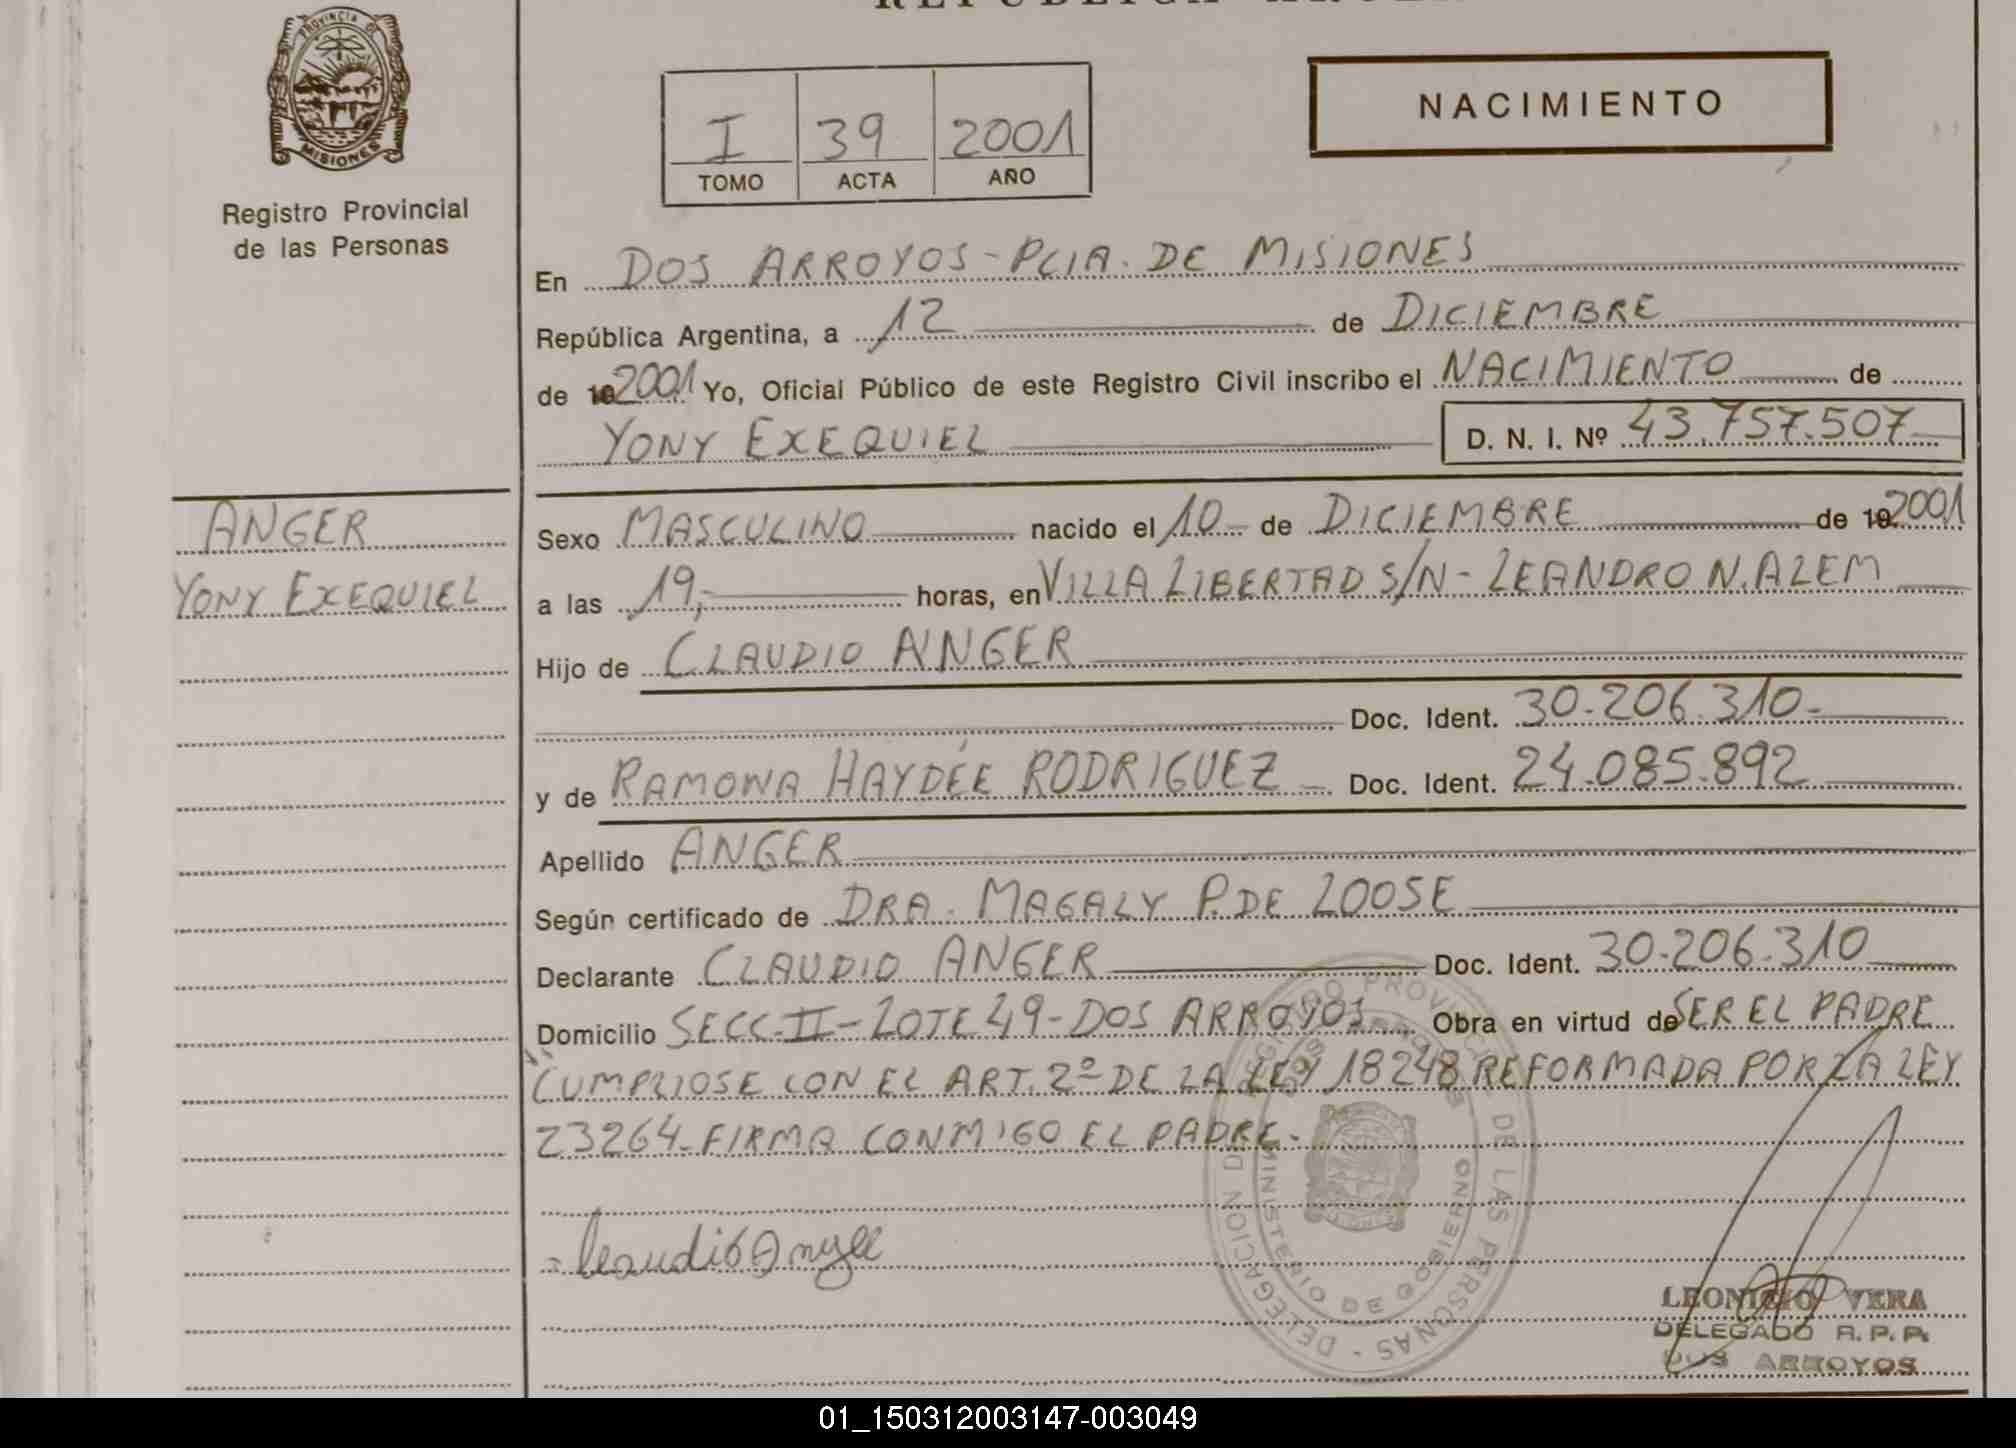 PROVINCIA DE
MISIONES
Registro Provincial
de las Personas
I 39 2001
TOMO ACTA AÑO
NACIMIENTO
En DOS ARROYOS - PCIA. DE MISIONES
República Argentina, a 12 de DICIEMBRE
de 19 2001 Yo, Oficial Público de este Registro Civil inscribo el NACIMIENTO de
YONY EXEQUIEL D. N. I. Nº 43.757.507
ANGER
YONY EXEQUIEL
Sexo MASCULINO nacido el 10 de DICIEMBRE de 19 2001
a las 19,- horas, en VILLA LIBERTAD S/N - LEANDRO N. ALEM
Hijo de CLAUDIO ANGER
Doc. Ident. 30.206.310-
y de RAMONA HAYDÉE RODRIGUEZ Doc. Ident. 24.085.892
Apellido ANGER
Según certificado de DRA. MAGALY P. DE LOOSE
Declarante CLAUDIO ANGER Doc. Ident. 30.206.310
Domicilio SECC-II-LOTE 49-DOS ARROYOS Obra en virtud de SER EL PADRE
CUMPLIOSE CON EL ART. 2º DE LA LEY 18248 REFORMADA POR LA LEY
23264-FIRMA CONMIGO EL PADRE-
Claudio Anger
REGISTRO PROVINCIAL DE LAS PERSONAS - DELEGACION
DOS ARROYOS
MINISTERIO DE GOBIERNO
LEONICIO VERA
DELEGADO R. P. P.
DOS ARROYOS
01_150312003147-003049